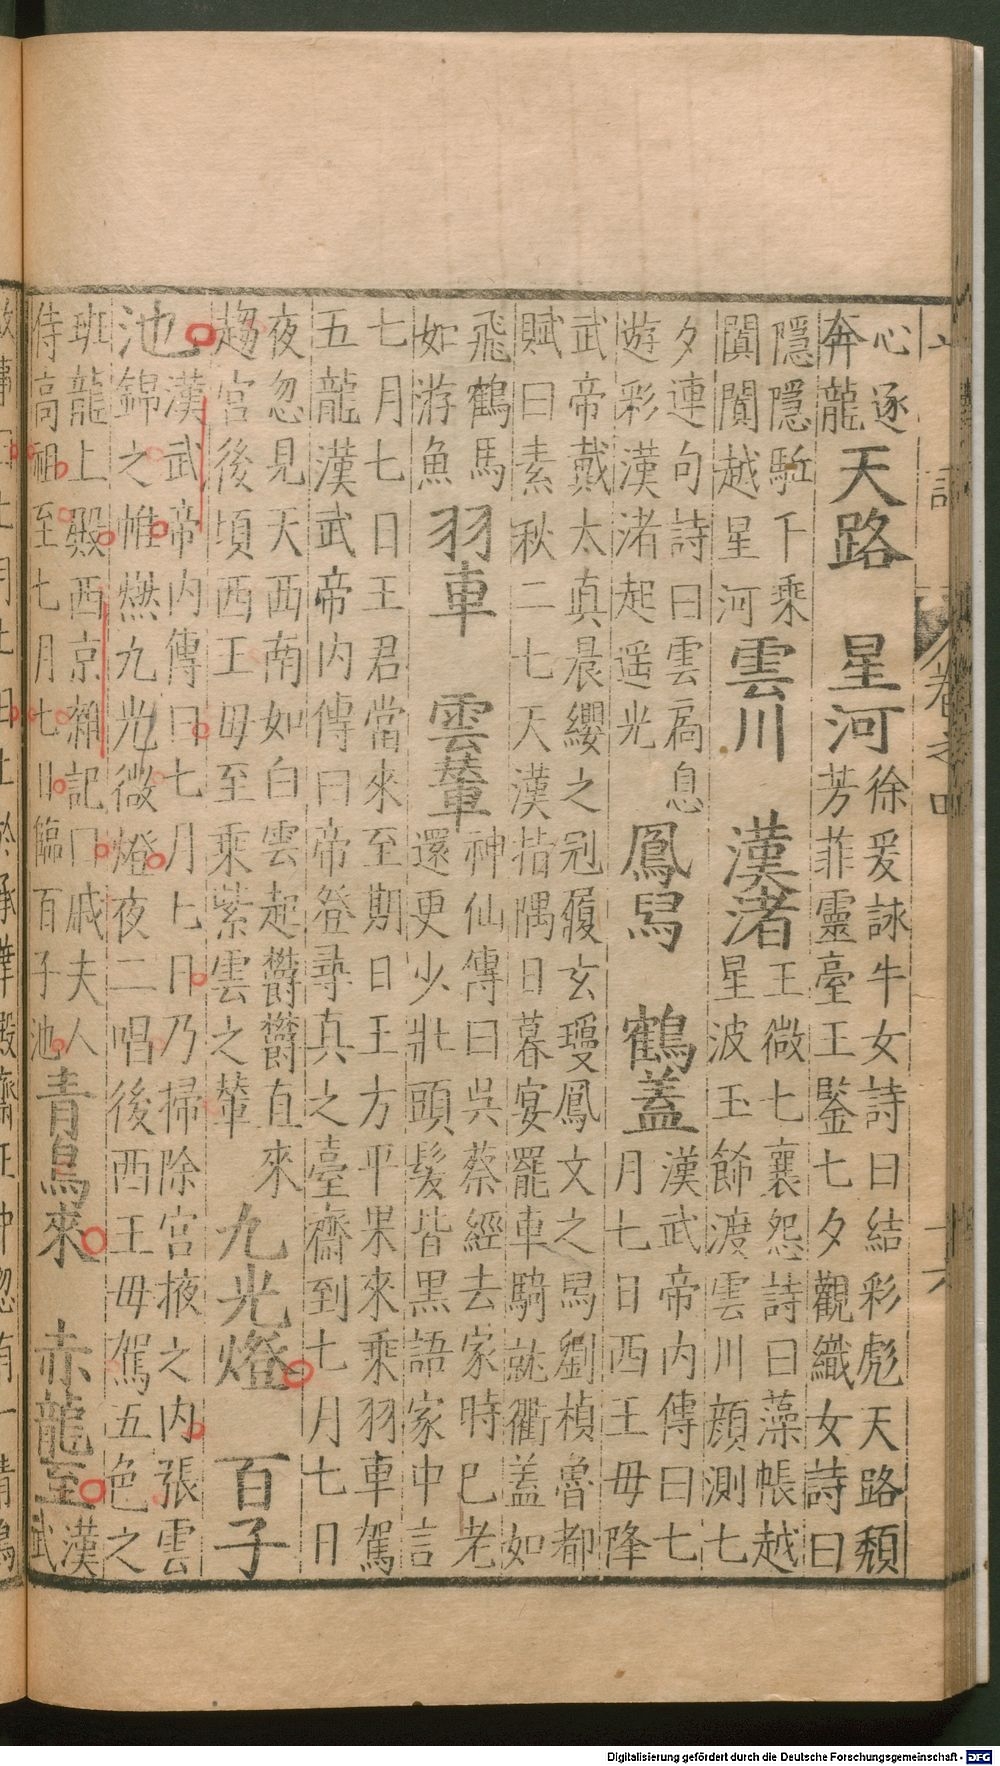 心逐
奔龍
天路　星河
徐爰詠牛女詩曰結彩彪天路頳
芳菲靈臺王鑒七夕觀織女詩曰
隱隱駈千乘
闐闐越星河
雲川　漢渚
王微七襄怨詩曰藻帳越
星波玉飾渡雲川顏測七
夕連句詩曰雲扃息
遊彩漢渚起遥光
鳳舄　鶴蓋
漢武帝內傳曰七
月七日西王母降
武帝戴太真晨纓之冠履玄瓊鳳文之舄劉楨魯都
賦曰素秋二七天漢指隅日暮宴罷車騎就衢蓋如
飛鶴馬
如游魚
羽車　雲輦
神仙傳曰吳蔡經去家時已老
還更少壯頭髮皆黑語家中言
七月七日王君當來至期日王方平果來乘羽車駕
五龍漢武帝內傳曰帝登尋真之臺齋到七月七日
夜忽見天西南如白雲起欝欝直來
趨宮後頃西王母至乘紫雲之輦
九光燈　百子
池
漢武帝內傳曰七月七日乃掃除宮掖之內張雲
錦之帷燃九光微燈夜二唱後西王母駕五色之
班龍上殿西京雜記曰戚夫人
侍高祖至七月七日臨百子池
青鳥來　赤龍至
漢
武
Digitalisierung gefördert durch die Deutsche Forschungsgemeinschaft - DFG